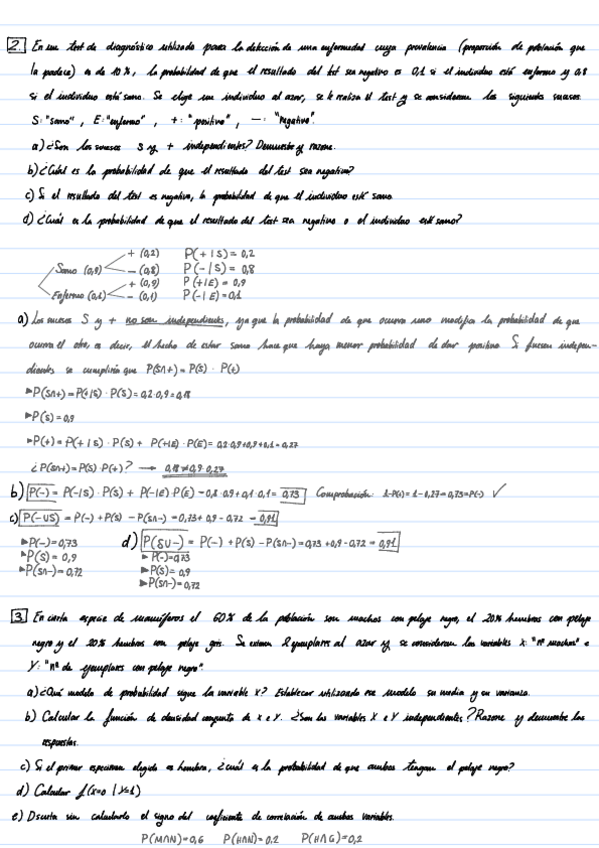 2. En un test de diagnóstico utilizado para la detección de una enfermedad cuya prevalencia (proporción de población que
la padece) es de 10%, la probabilidad de que el resultado del test sea negativo es 0,1 si el individuo está enfermo y 0,8
si el individuo está sano. Se elige un individuo al azar, se le realiza el test y se consideran los siguientes sucesos
S: "sano", E: "enfermo", +: "positivo", -: "negativo".
a) ¿Son los sucesos S y + independientes? Demuestre y razone.
b) ¿Cuál es la probabilidad de que el resultado del test sea negativo?
c) Si el resultado del test es negativo, la probabilidad de que el individuo esté sano.
d) ¿Cuál es la probabilidad de que el resultado del test sea negativo o el individuo esté sano?
Sano (0,9) + (0,2) P(+|S) = 0,2
- (0,8) P(-|S) = 0,8
Enfermo (0,1) + (0,9) P(+|E) = 0,9
- (0,1) P(-|E) = 0,1
a) Los sucesos S y + no son independientes, ya que la probabilidad de que ocurra uno modifica la probabilidad de que
ocurra el otro, es decir, el hecho de estar sano hace que haya menor probabilidad de dar positivo. Si fuesen indepen-
dientes se cumpliría que P(S∩+) = P(S) · P(+)
▶P(S∩+) = P(+|S) · P(S) = 0,2 · 0,9 = 0,18
▶P(S) = 0,9
▶P(+) = P(+|S) · P(S) + P(+|E) · P(E) = 0,2·0,9+0,9·0,1 = 0,27
¿P(S∩+) = P(S) · P(+)? → 0,18 ≠ 0,9 · 0,27
b) P(-) = P(-|S) · P(S) + P(-|E) · P(E) = 0,8 · 0,9 + 0,1 · 0,1 = 0,73 Comprobación: 1-P(+) = 1-0,27 = 0,73 = P(-) ✓
c) P(-∪S) = P(-) + P(S) - P(S∩-) = 0,73 + 0,9 - 0,72 = 0,91
▶P(-) = 0,73
▶P(S) = 0,9
▶P(S∩-) = 0,72
d) P(S∪-) = P(-) + P(S) - P(S∩-) = 0,73 + 0,9 - 0,72 = 0,91
▶P(-) = 0,73
▶P(S) = 0,9
▶P(S∩-) = 0,72
3. En cierta especie de mamíferos el 60% de la población son machos con pelaje negro, el 20% hembras con pelaje
negro y el 20% hembras con pelaje gris. Se extraen 2 ejemplares al azar y se consideran las variables X: "nº machos" e
Y: "nº de ejemplares con pelaje negro".
a) ¿Qué modelo de probabilidad sigue la variable X? Establecer utilizando ese modelo su media y su varianza.
b) Calcular la función de densidad conjunta de X e Y. ¿Son las variables X e Y independientes? Razone y demuestre las
respuestas.
c) Si el primer especimen elegido es hembra, ¿cuál es la probabilidad de que ambos tengan el pelaje negro?
d) Calcular f(x=0 | Y=1)
e) Discuta sin calcularlo el signo del coeficiente de correlación de ambas variables.
P(M∩N) = 0,6 P(H∩N) = 0,2 P(H∩G) = 0,2